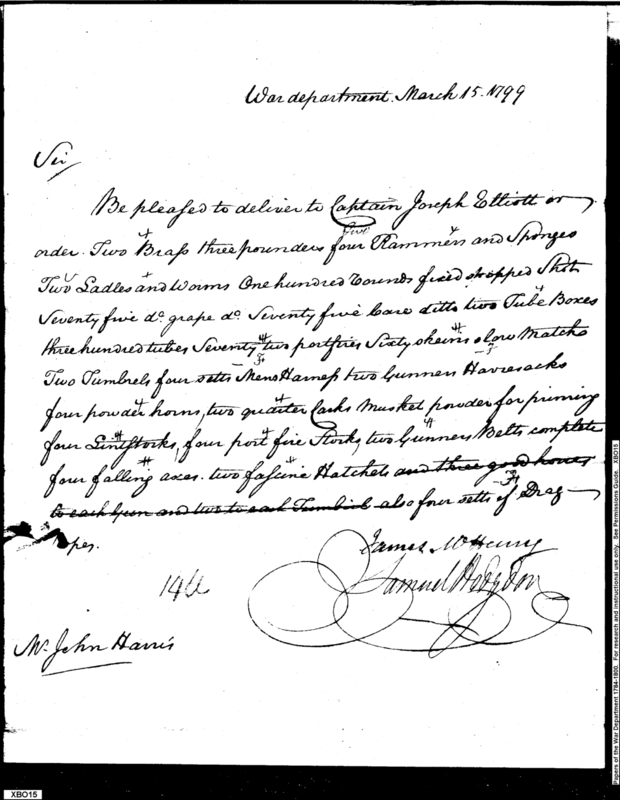 War department. March 15. 1799
Sir
Be pleased to deliver to Captain Joseph Elliott or
order. Two Brass three pounders four Rammers and Sponges
Two Ladles and Worms One hundred rounds fixed strapped Shot
Seventy five do. grape do. Seventy five Case ditto two Tube Boxes
three hundred tubes Seventy two portfires Sixty skeins slow Match
Two Tumbrels four setts Mens Harness two Gunners Havresacks
four powder horns, two quarter Casks Musket powder for priming
four Lintstocks, four port fire Stocks, two Gunners Belts complete
four falling axes. two fasine Hatchets and three good horses
to each Gun and two to each Tumbril also four setts of Drag
ropes.
James McHenry
Samuel Hodgdon
Mr. John Harris
Papers of the War Department 1784-1800. For research and instructional use only. See Permissions Guide. XBO15
XBO15